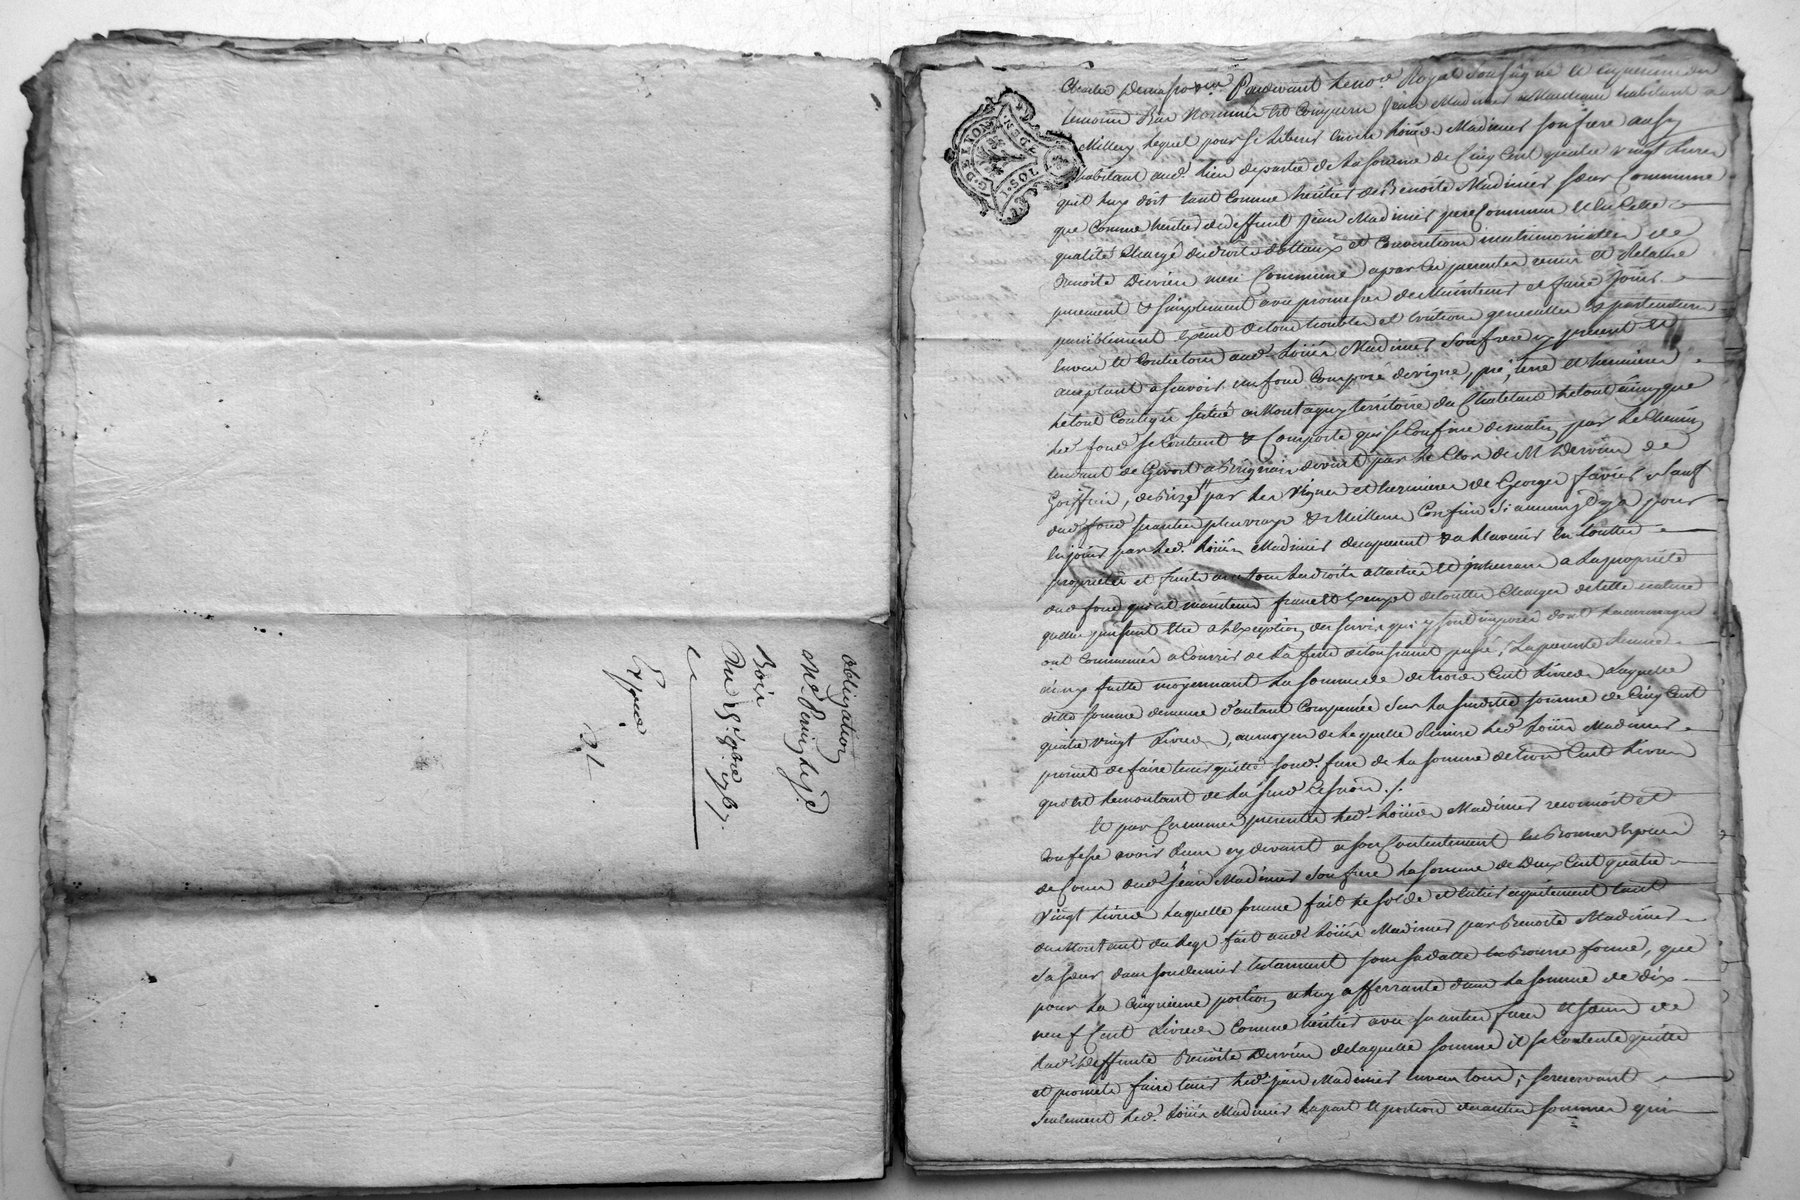 obligation
Mr Perrin
Bois
Du 15e 9bre 1767
Expédiée
G. DE LYON
Pardevant le no.re Royal soussigné et en présence des
temoins Bas Nommés est comparu Jean Madinier Marchand habitant a
Millery lequel pour se liberer envers Madinier son frere aussy
habitant aud. lieu de partie de la somme de Cinq Cent quatre vingt livres
quil luy doit tant comme heritier de Benoite Madinier soeur Commune
que comme heritier de deffunt Jean Madinier pere Commun et en cette
qualité chargé des droits dottaux et conventions matrimonialles de
Benoite Dervieu mere Commune a par ces presentes remis et relaché
purement & simplement avec promesse de Maintenir et faire jouir
paisiblement exempt de tous troubles et evictions generalles & particulieres
envers et contre tous aud. Madinier son frere cy present et
acceptant a scavoir un fond Composé de vigne, pré, terre et hermiere
le tout Contigu scitué a Montagny territoire du Chatelard le tout ainsy que
led. fond se Contient & Comporte qui se Confine de matin par le Chemin
tendant de Givort a Brignais de vent par le Clos de Mr Dervieu de
Goiffieu, de bize par les Vignes et hermieres de George favier sauf
dud. fond ses autres plus vrays & Meilleurs Confins si aucuns y a pour
en jouir par led. Madinier des apresent & a l'avenir en toutte
proprieté et fruits avec tous les droits attachés et inherans a la proprieté
dud. fond quil maintient franc et exempt de touttes Charges de cette nature
quelles que puissent etre a l'exception des servis qui y sont imposés dont les arrerages
ont commencé a Courrir de la fete de toussaint passé, La presente remise
ainsy faitte moyennant la somme de trois Cent livres Laquelle
ditte somme demeure d'autant Compensée sur la susditte somme de Cinq Cent
quatre vingt livres, au moyen de laquelle remise led. Madinier
promet de faire tenir quitte sond. frere de la somme de trois Cent livres
qui est le montant de la susd. Cession ./.
Et par ces memes presentes led. Madinier reconnoit et
Confesse avoir recu cy devant a son Contentement en bonnes especes
de Cours dud. Jean Madinier son frere la somme de Deux Cent quatre
Vingt livres laquelle somme fait le solde et entier payement tant
du Montant du legs fait aud. Madinier par Benoite Madinier
sa soeur dans son dernier testament sous sa datte en Bonne forme, que
pour la Cinquieme portion a luy afferrante dans la somme de dix
neuf Cent livres Comme heritier avec ses autres freres et soeurs de
lad. deffunte Benoite Dervieu de laquelle somme il se Contente quitte
et promet faire tenir led. Jean Madinier envers tous, se reservant
seulement led. Madinier la part et portion des autres sommes qui